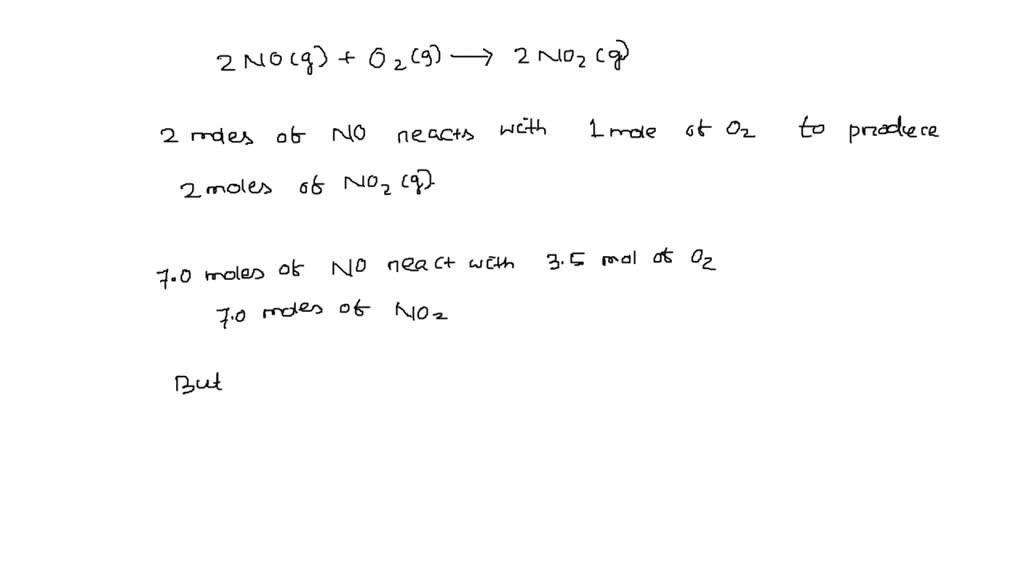 2 NO(g) + O2(g) → 2 NO2(g)
2 moles of NO reacts with 1 mole of O2 to produce
2 moles of NO2(g).
7.0 moles of NO react with 3.5 mol of O2
7.0 moles of NO2
But